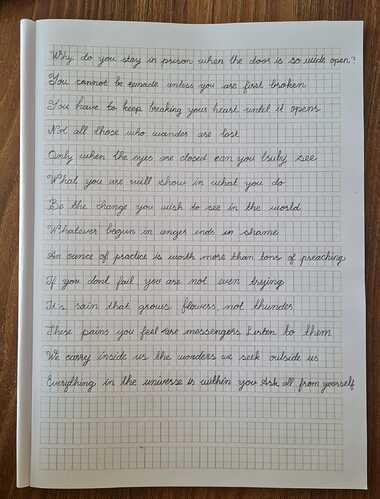 Why do you stay in prison when the door is so wide open?
You cannot be remade unless you are first broken
You have to keep breaking your heart until it opens
Not all those who wander are lost
Only when the eyes are closed can you truly see
What you are will show in what you do
Be the change you wish to see in the world
Whatever begun in anger ends in shame
An ounce of practice is worth more than tons of preaching
If you dont fail you are not even trying
It's rain that grows flowers, not thunder
These pains you feel are messengers. Listen to them
We carry inside us the wonders we seek outside us
Everything in the universe is within you Ask all from yourself